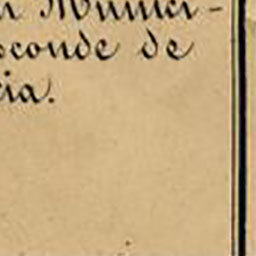 Munici-
conde de
cia.